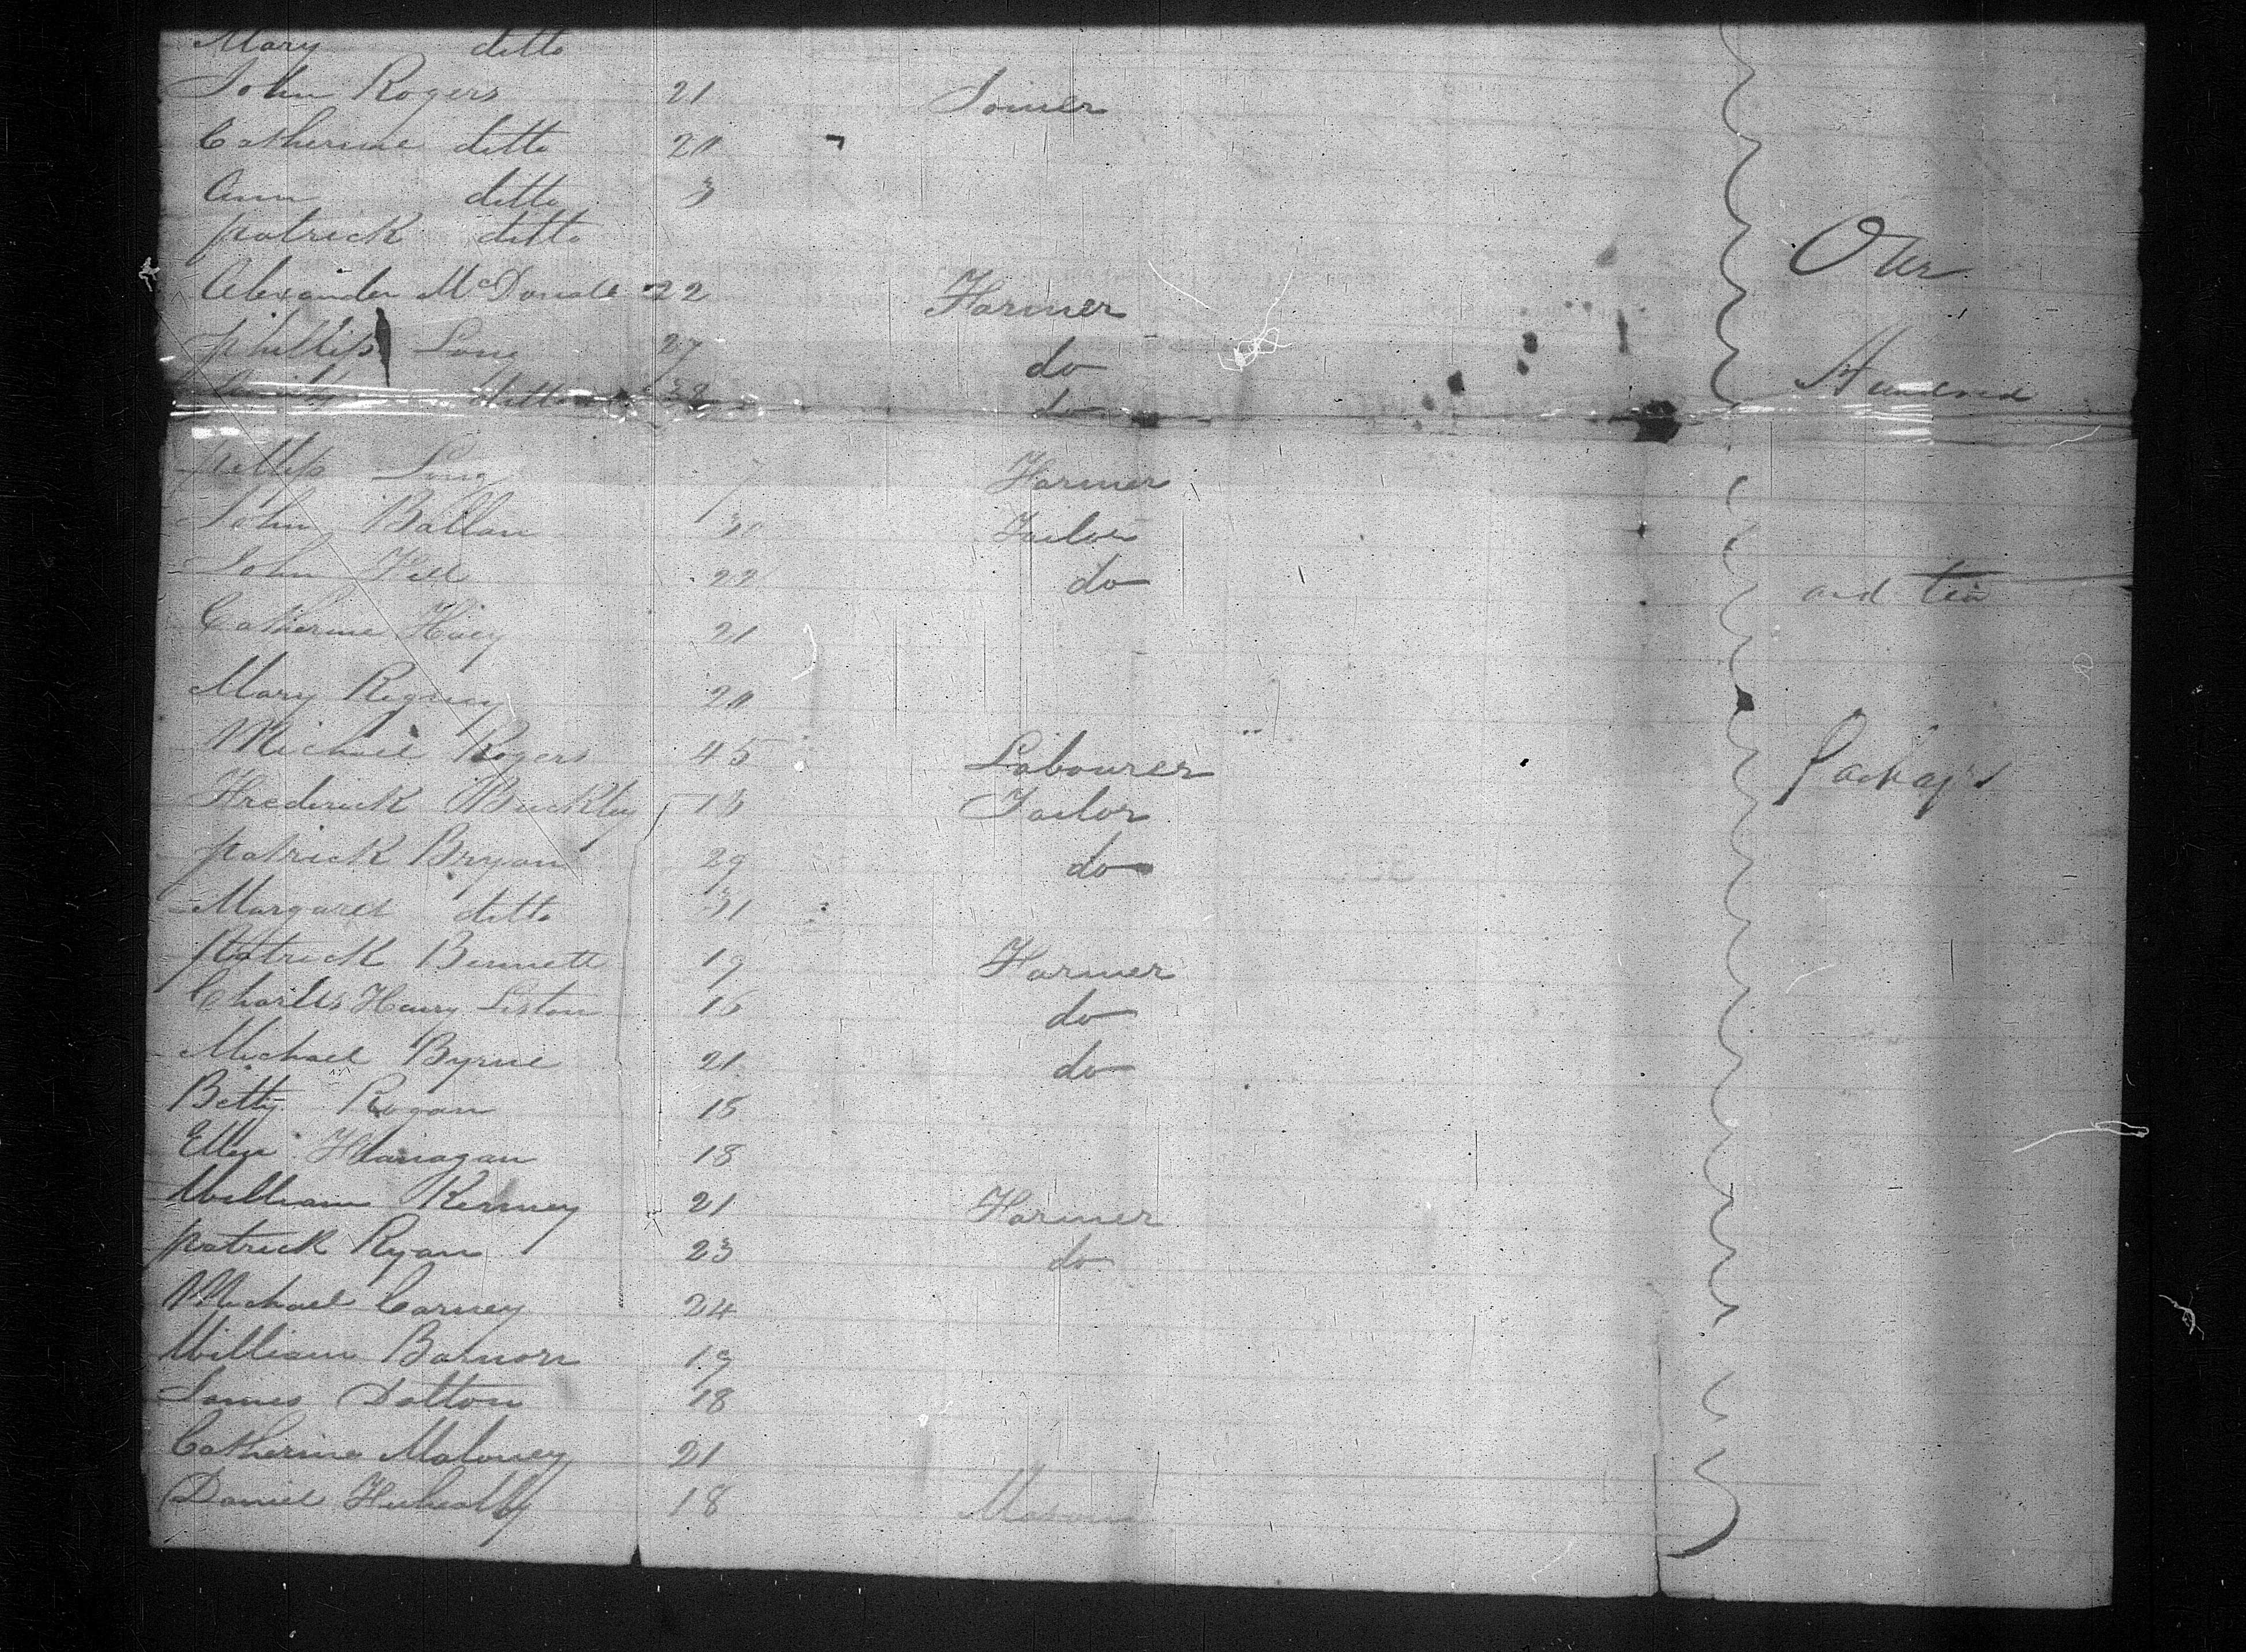 Mary ditto
John Rogers 21 Joiner
Catherine ditto 20
Ann ditto 3
patrick ditto
Alexander McDonald 22 Farmer
phillip Long 27 do
ditto do
phillip Long 7 Farmer
John Ballan 30 Tailor
John Hill 22 do
Catherine Hoey 21
Mary Regney 20
Michael Rogers 45 Labourer
Frederick Buckley 13 Tailor
patrick Bryan 29 do
Margaret ditto 31
Patrick Bennett 19 Farmer
Charles Henry Liston 16 do
Michael Byrne 21 do
Betty Rogan 18
Ellen Flanagan 18
William Kenney 21 Farmer
patrick Ryan 23 do
Michael Carney 24
William Barnon 19
James Dalton 18
Catherine Maloney 21
Daniel 18 Mason
One
Hundred
and ten
packages